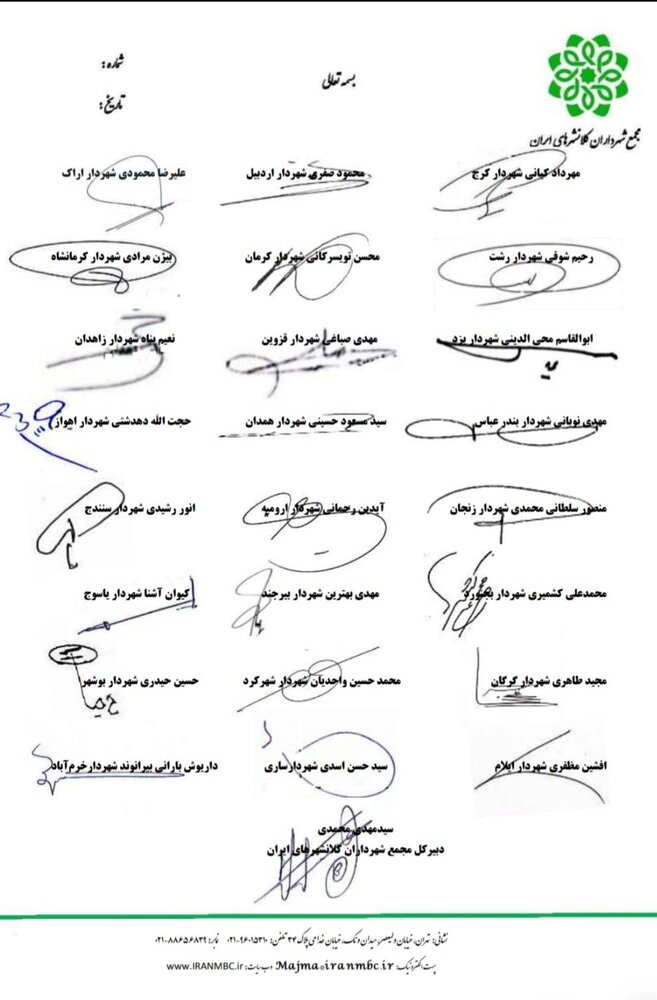 بسمه تعالی
شماره:
تاریخ:
مجمع شهرداران کلانشهرهای ایران
مهرداد کیانی شهردار کرج
محمود صفری شهردار اردبیل
علیرضا محمودی شهردار اراک
رحیم شوقی شهردار رشت
محسن تویسرکانی شهردار کرمان
بیژن مرادی شهردار کرمانشاه
ابوالقاسم محی الدینی شهردار یزد
مهدی صباغی شهردار قزوین
نعیم پناه شهردار زاهدان
مهدی نوبانی شهردار بندر عباس
سید مسعود حسینی شهردار همدان
حجت الله دهدشتی شهردار اهواز
منصور سلطانی محمدی شهردار زنجان
آیدین رحمانی شهردار ارومیه
انور رشیدی شهردار سنندج
محمدعلی کشمیری شهردار بجنورد
مهدی بهترین شهردار بیرجند
کیوان آشنا شهردار یاسوج
مجید طاهری شهردار گرگان
محمد حسین واحدیان شهردار شهرکرد
حسین حیدری شهردار بوشهر
افشین مظفری شهردار ایلام
سید حسن اسدی شهردارساری
داریوش بارانی بیرانوند شهردارخرم‌آباد
سیدمهدی محمدی
دبیرکل مجمع شهرداران کلانشهرهای ایران
نشانی: تهران، خیابان ولیعصر، میدان ونک، خیابان خدامی پلاک ۳۴ تلفن: ۹۶۰۱۵۳۱۰-۰۲۱ نمابر: ۸۸۶۵۶۸۳۹-۰۲۱
پست الکترونیک: Majma@iranmbc.ir وب سایت: www.IRANMBC.ir